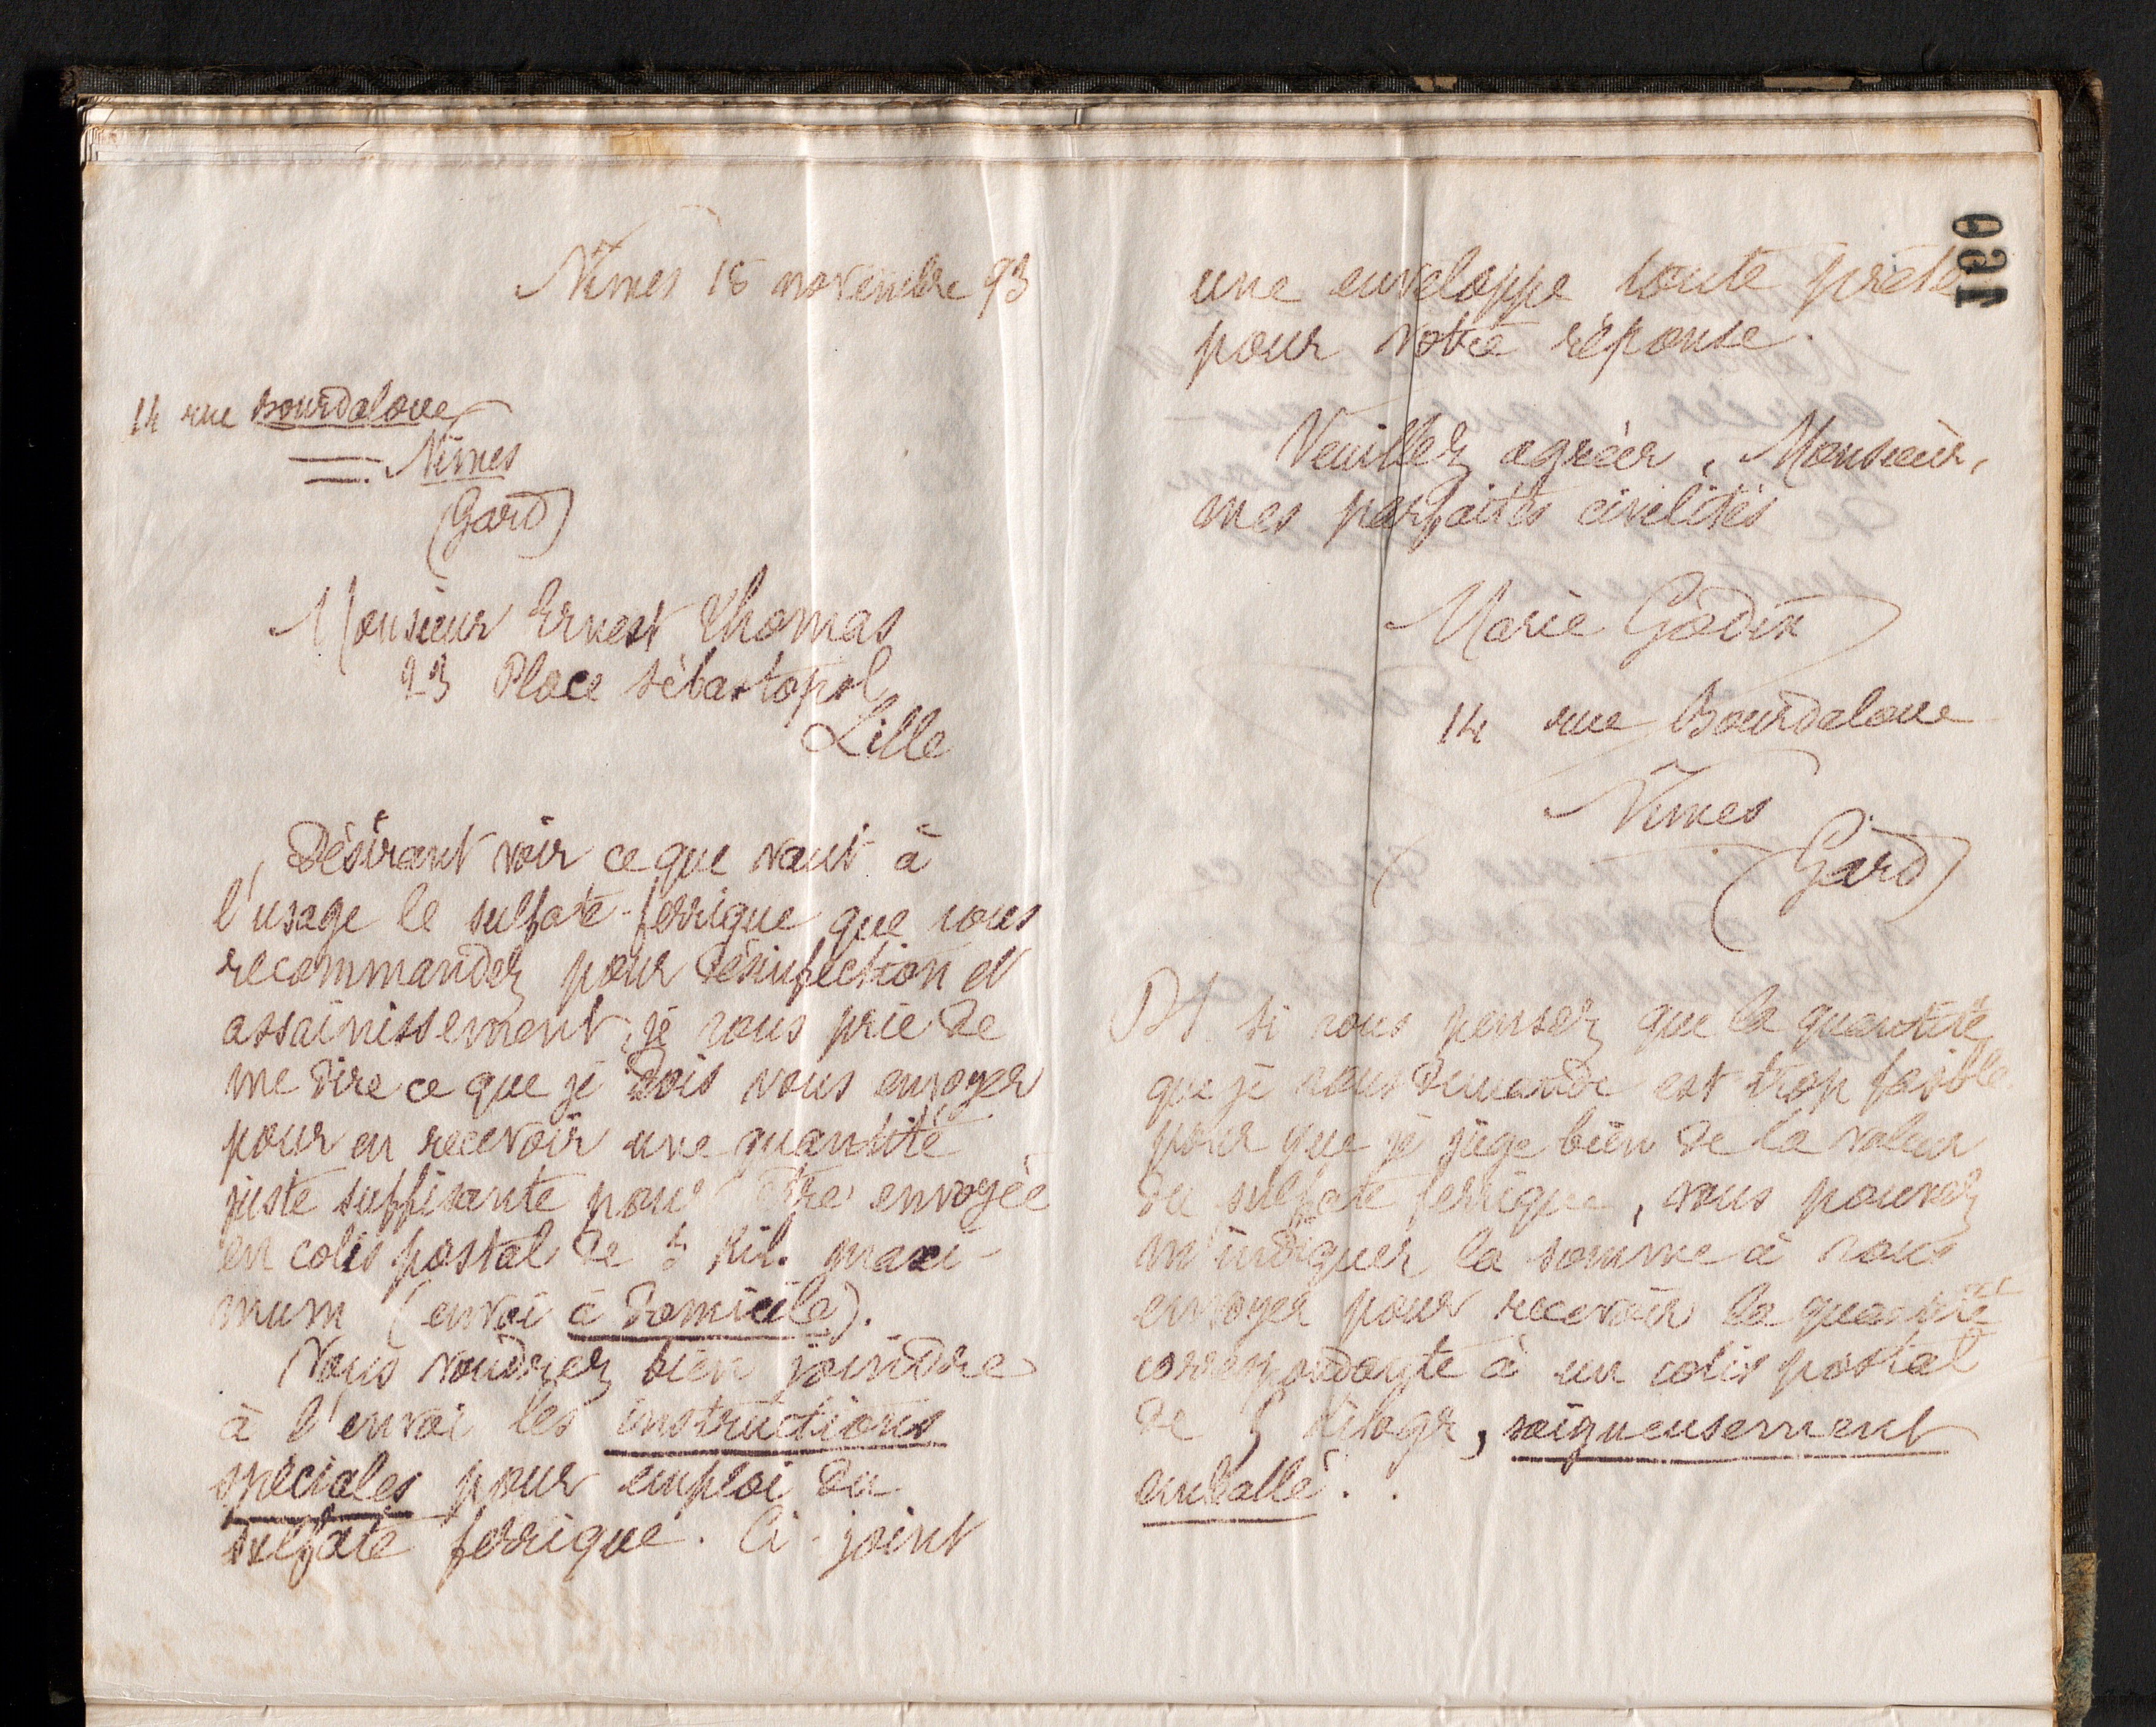 Nîmes 18 novembre 93
14 rue Bourdaloue
Nîmes
(Gard)
Monsieur Ernest Thomas
23 Place Sébastopol
Lille
Désirant voir ce que vaut à
l'usage le sulfate-ferrique que vous
recommandez pour désinfection et
assainissement, je vous prie de
me dire ce que je dois vous envoyer
pour en recevoir une quantité
juste suffisante pour être envoyée
en colis postal de 5 kil. maxi-
mum (envoi à domicile).
Vous voudrez bien joindre
à l'envoi les instructions
spéciales pour emploi du
sulfate ferrique. Ci-joint
une enveloppe toute prête
pour votre réponse.
Veuillez agréer, Monsieur,
mes parfaites civilités
Marie Godin
14 rue Bourdaloue
Nîmes
(Gard)
PS. Si vous pensez que la quantité
que je vous demande est trop faible
pour que je juge bien de la valeur
du sulfate ferrique, vous pouvez
m'indiquer la somme à vous
envoyer pour recevoir la quantité
correspondante à un colis postal
de 5 kilogr, soigneusement
emballé.